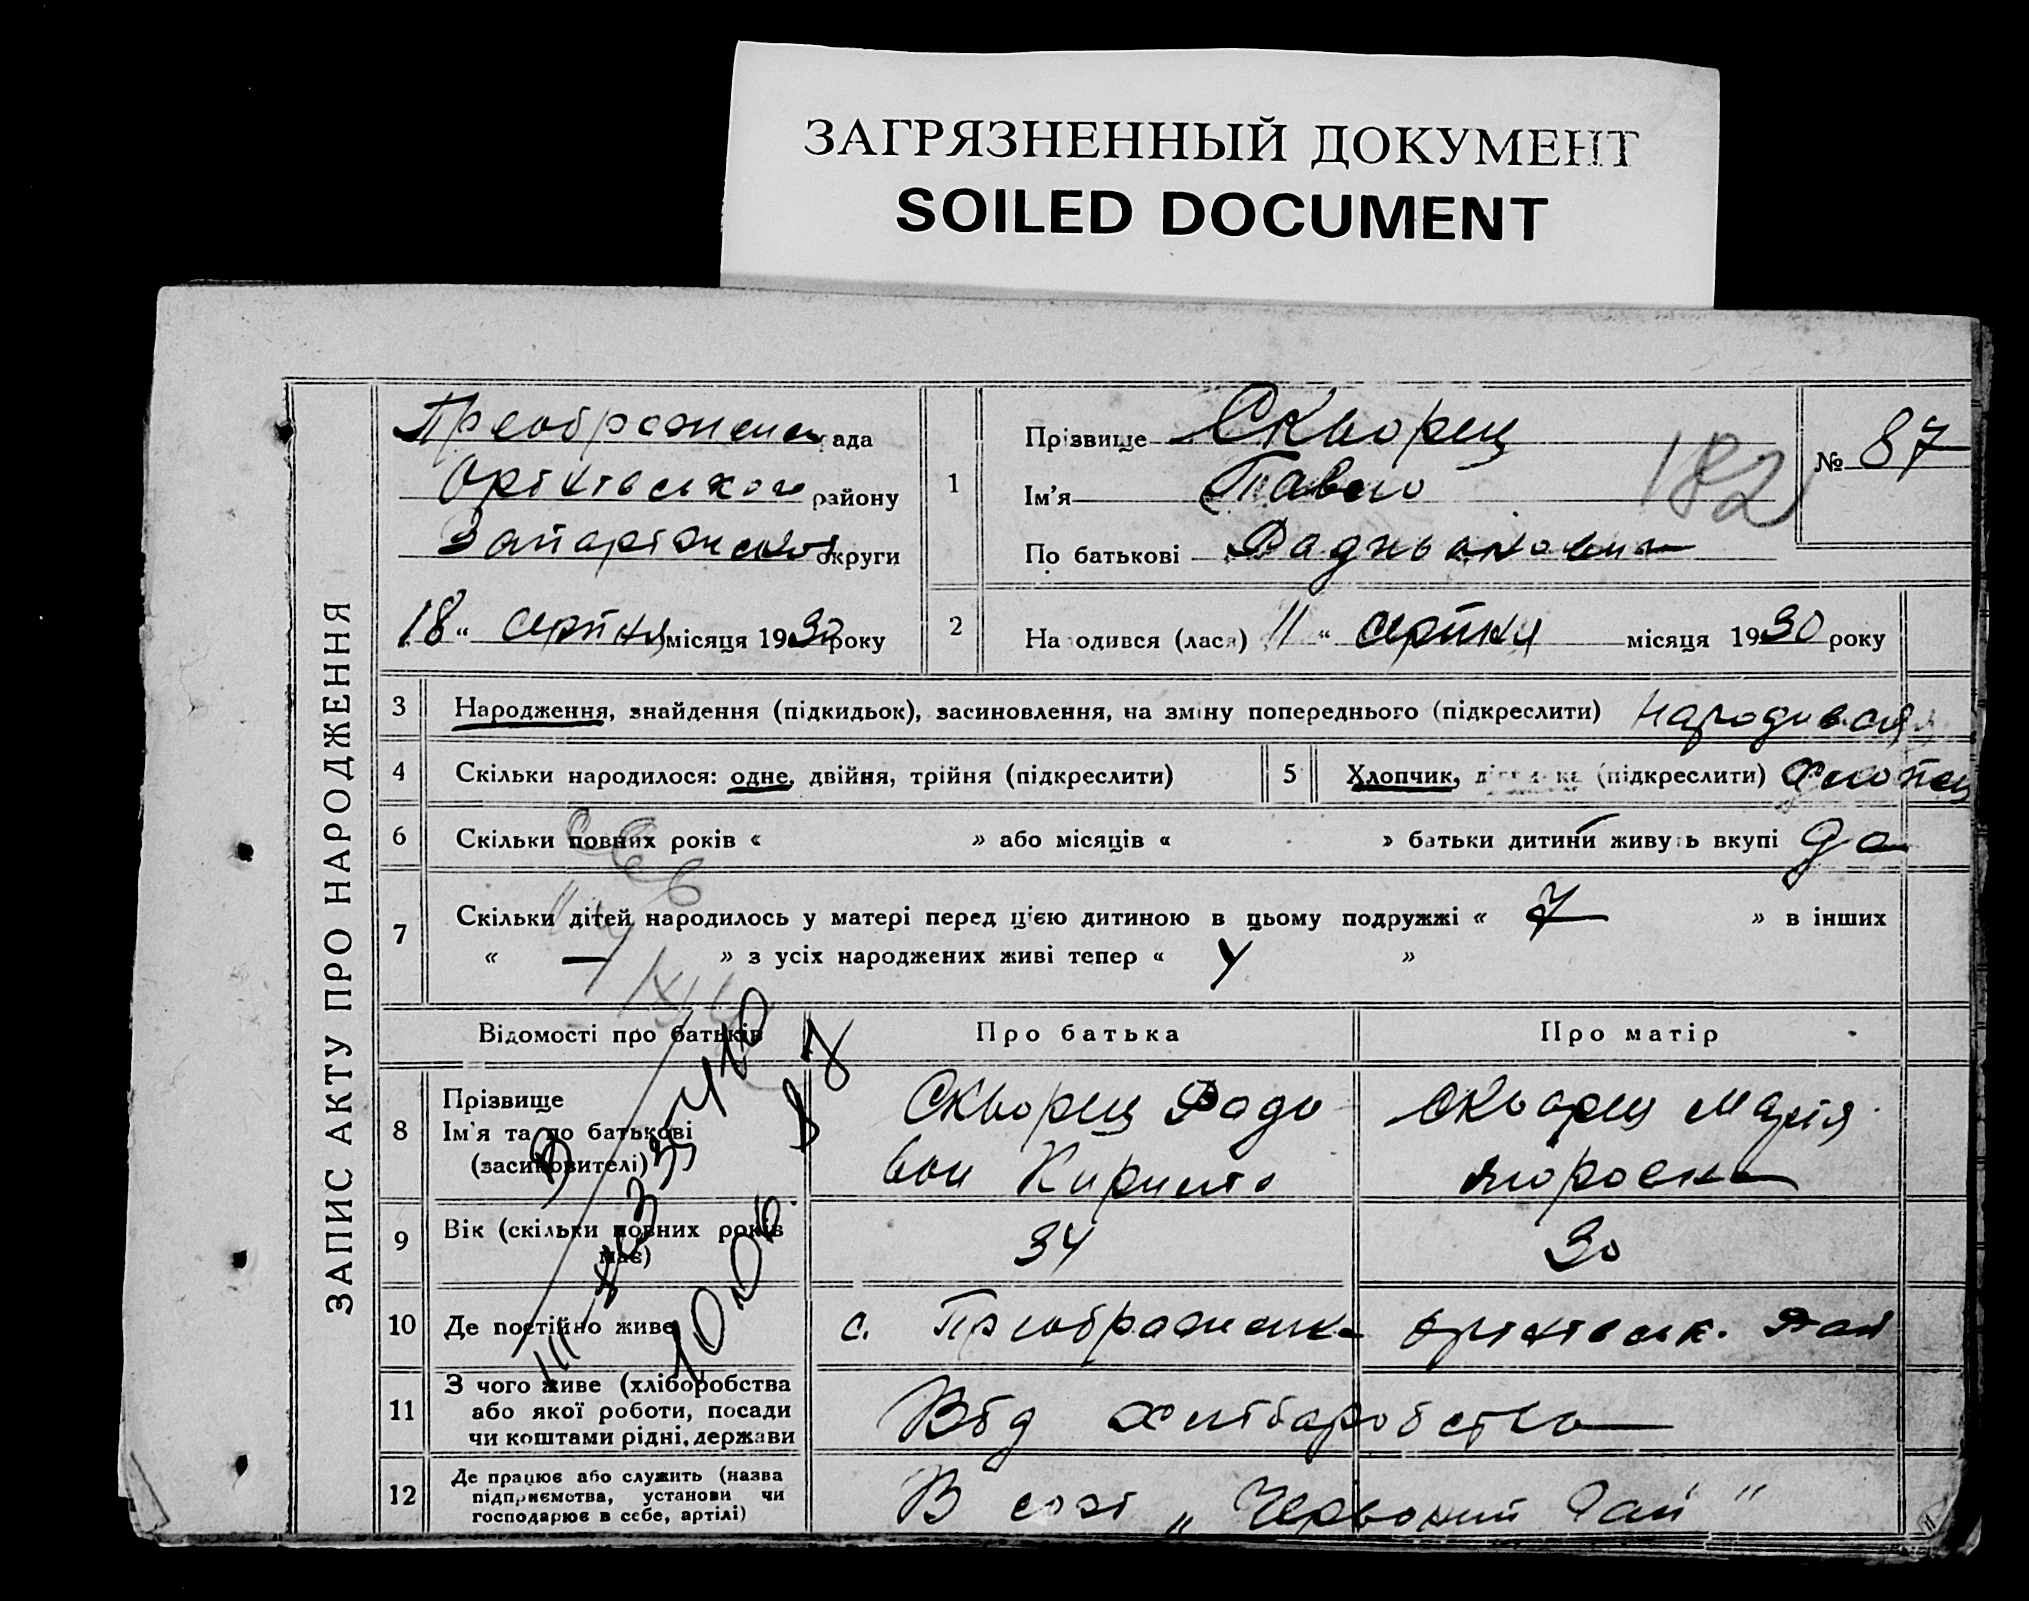 ЗАГРЯЗНЕННЫЙ ДОКУМЕНТ
SOILED DOCUMENT
ЗАПИС АКТУ ПРО НАРОДЖЕННЯ
Преображенск ада
Оріхівського району
Запоріжської округи
18 “ серпня місяця 1930 року
1
Прізвище Скворец
Ім’я Павло
По батькові
182
№ 87
2
На одився (лася) 11 “ серпня місяця 1930 року
3 Народження, знайдення (підкидьок), засиновлення, на зміну попереднього (підкреслити) народився
4 Скільки народилося: одне, двійня, трійня (підкреслити)
5 Хлопчик, (підкреслити) Хлопец
6 Скільки повних років « » або місяців « » батьки дитини живуть вкупі да
7 Скільки дітей народилось у матері перед цією дитиною в цьому подружжі « 7 » в інших
« — » з усіх народжених живі тепер « 4 »
Відомості про батьків
Про батька
Про матір
8 Прізвище
Ім’я та по батькові
(засиновителі)
Скворец Радивон
Скворец Марія
9 Вік (скільки повних років має)
34
30
10 Де постійно живе
с. Преображенка Оріхівськ. Рай
11 З чого живе (хліборобства
або якої роботи, посади
чи коштами рідні, держави
Від хліборобства
12 Де працює або служить (назва
підприємства, установи чи
господарює в себе, артілі)
В созі „Червоний Гай“